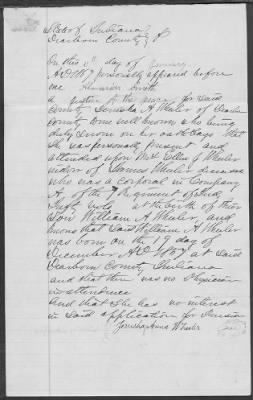 State of Indiana
Dearborn County
On this day of January
AD 1887 personally appeared before
me Alexander Smith
a Justice of the peace for said
County Jerusha A Wheeler of Dearborn
County to me well known who being
duly sworn on her oath says that
she was personally present and
attended upon Mrs Ellen J Wheeler
widow of James Wheeler deceased
who was a corporal in Company
A of the 7 Regiment of
Inft vols at the birth of their
Son William A Wheeler, and
knows that said William A Wheeler
was born on the 19 day of
December AD 1857 at said
Dearborn County Indiana
and that there was no Physician
in attendence
and that she has no interest
in said application for Pension
Jerusha Anna Wheeler